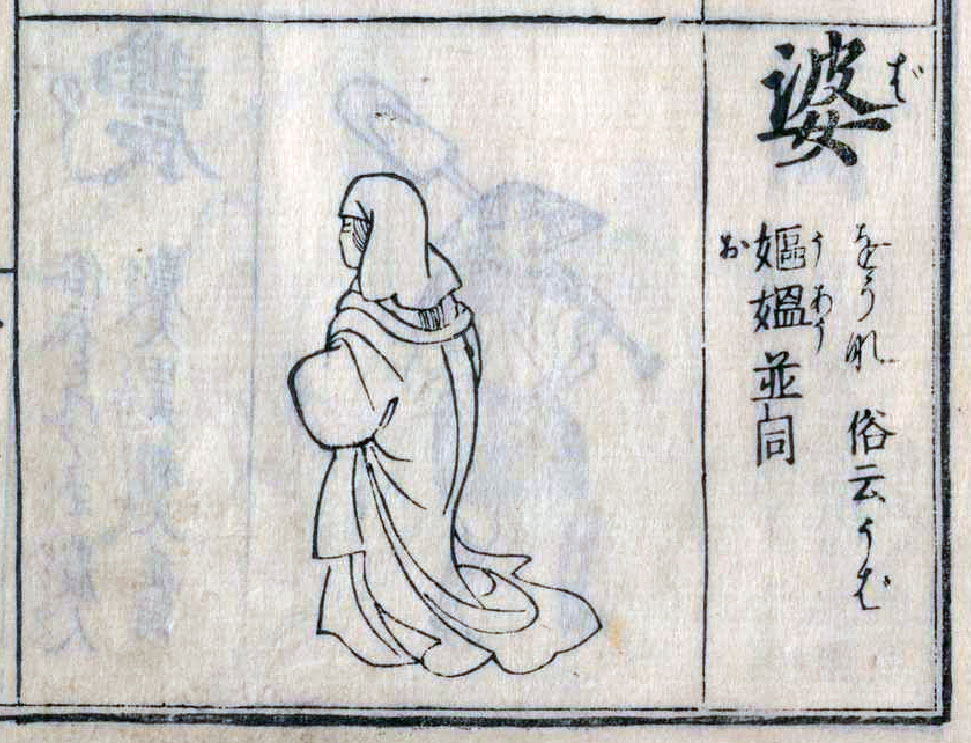 婆
ば
をうな 俗云うば
う あう
嫗媼並同
お